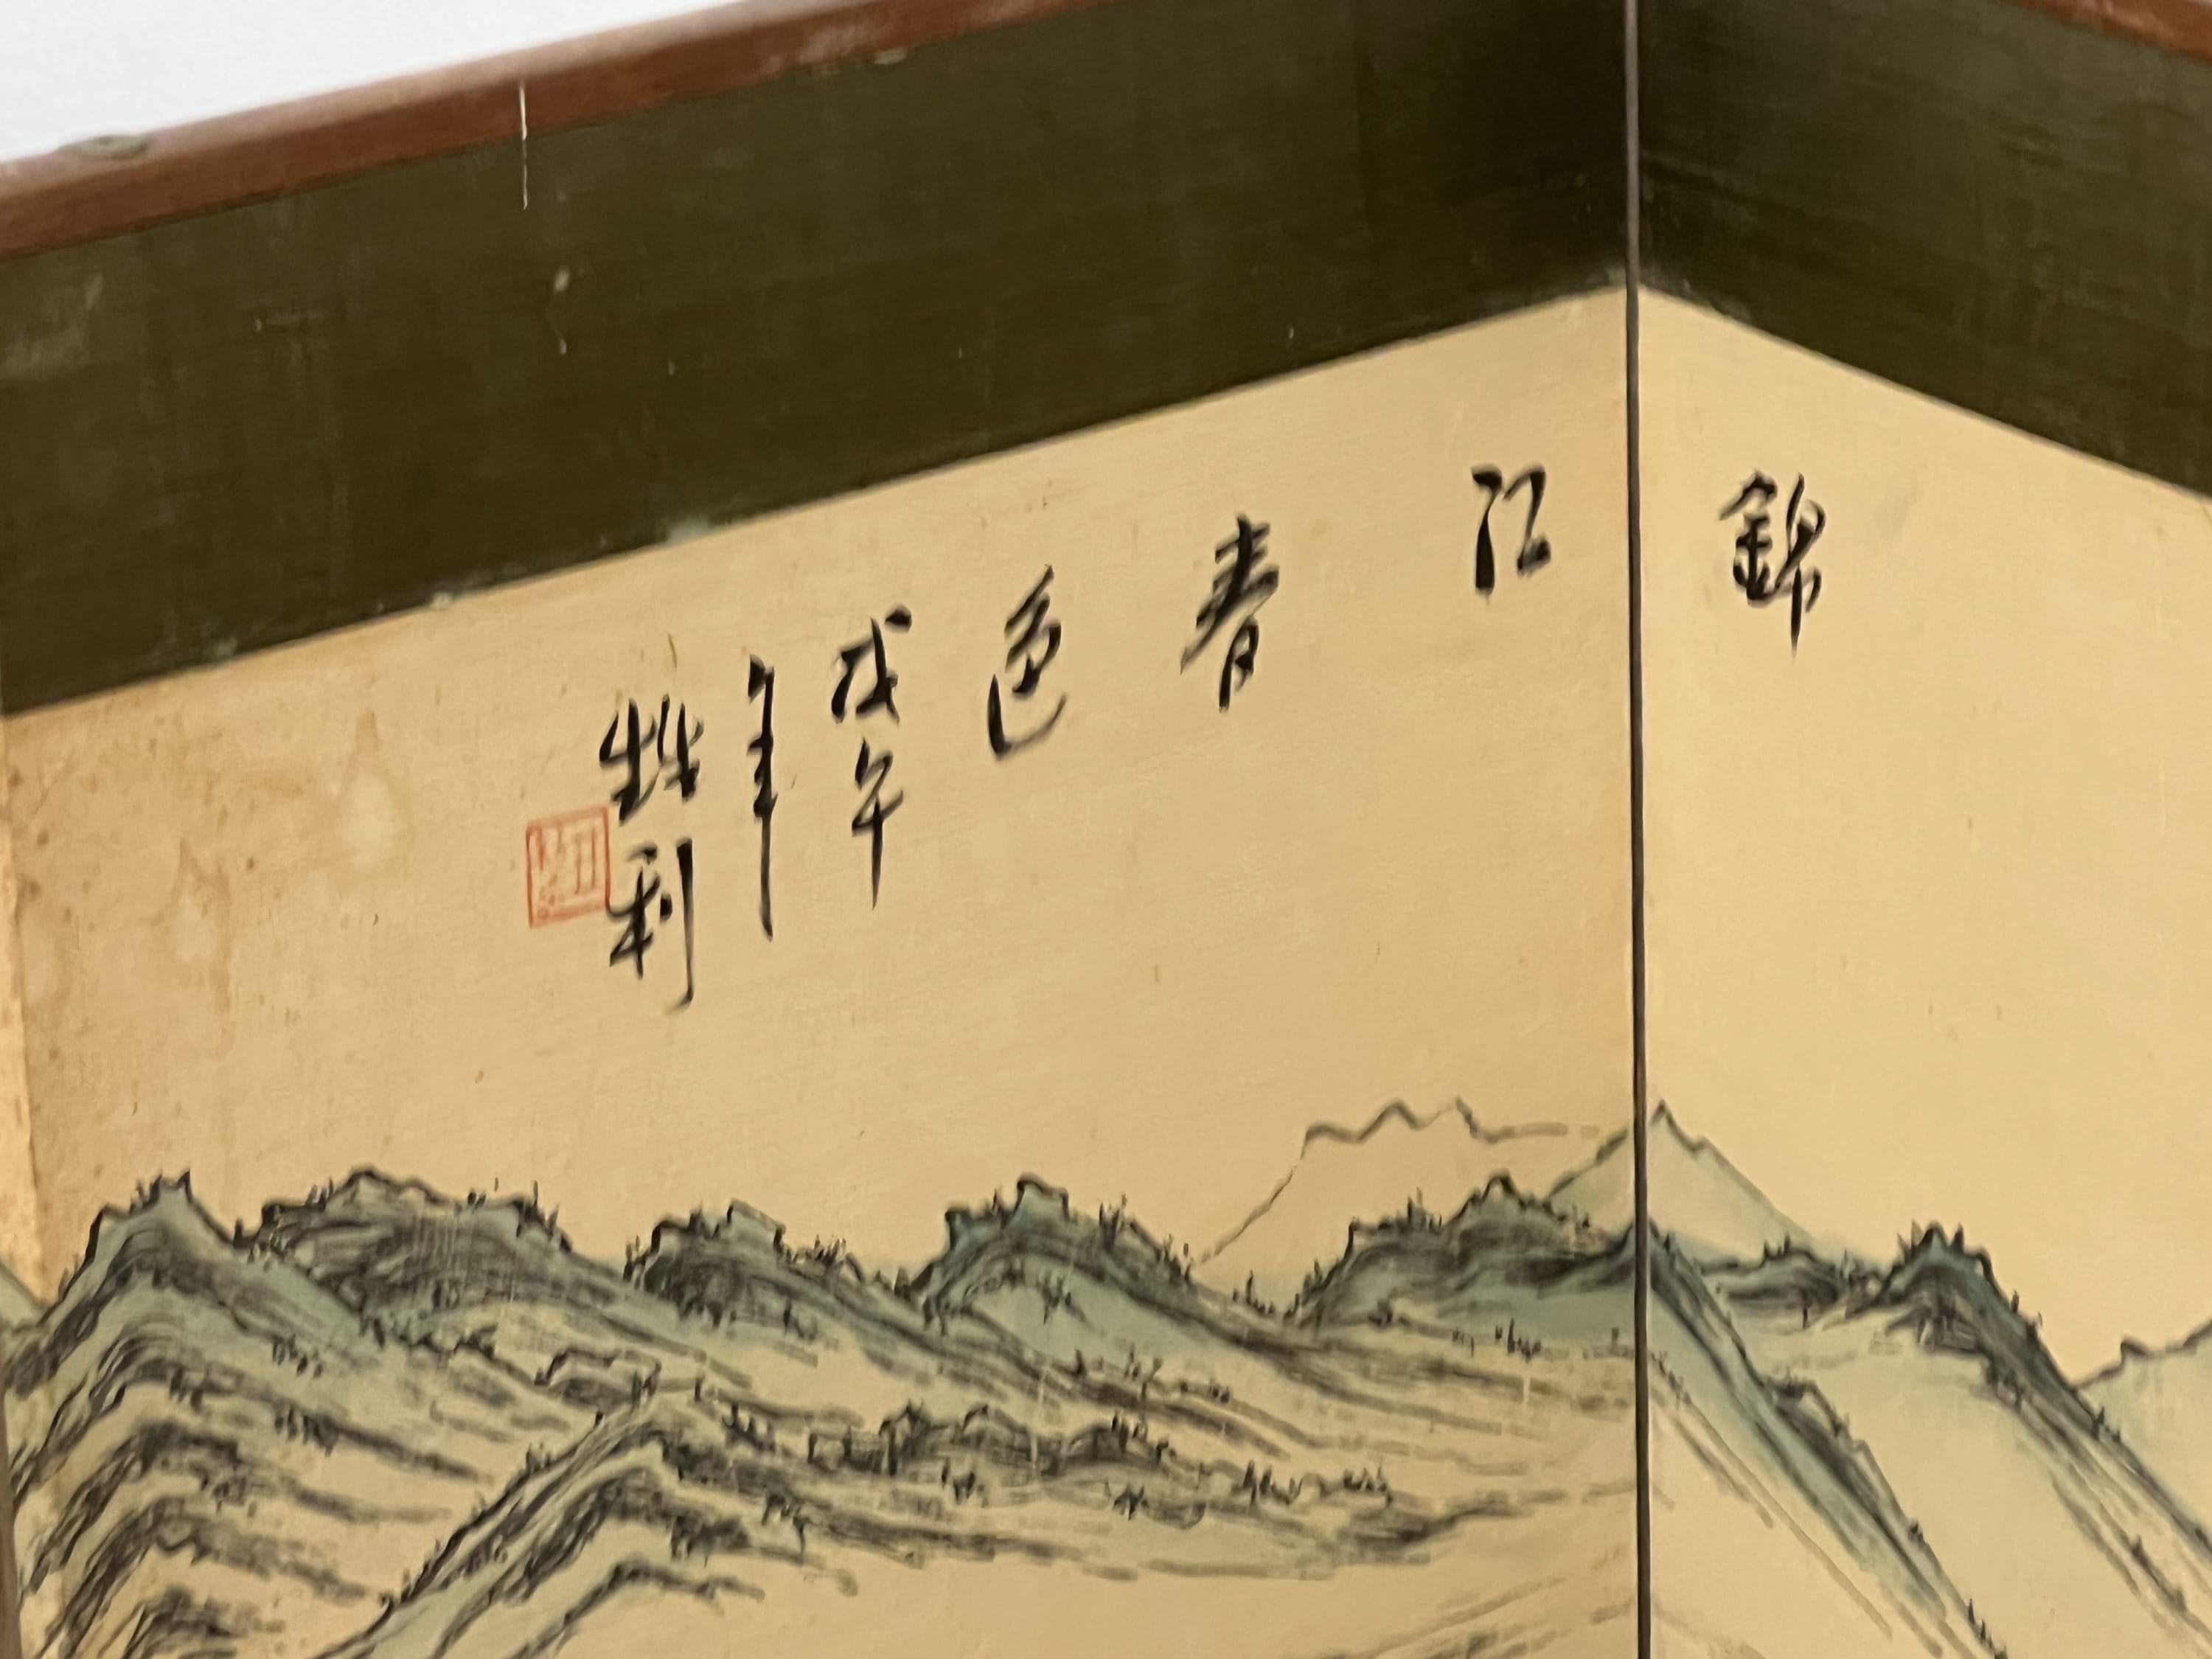 錦江春色
戊午
年
利